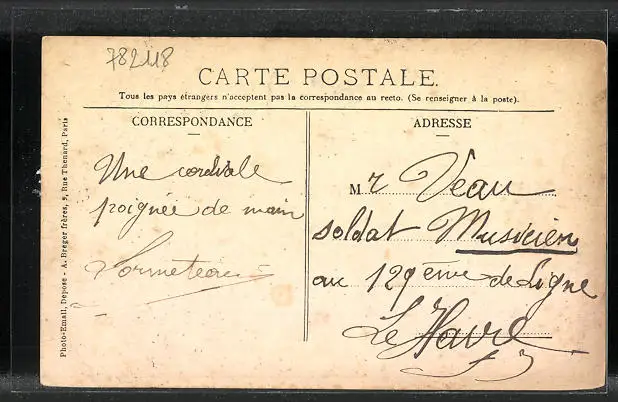 782118
CARTE POSTALE
Tous les pays étrangers n'acceptent pas la correspondance au recto. (Se renseigner à la poste).
CORRESPONDANCE
ADRESSE
Une cordiale
poignée de main
Mr Veau
soldat Musicien
au 129ème de Ligne
Le Havre
Photo-Email, Déposé - A. Breger frères, 9, Rue Thenard, Paris